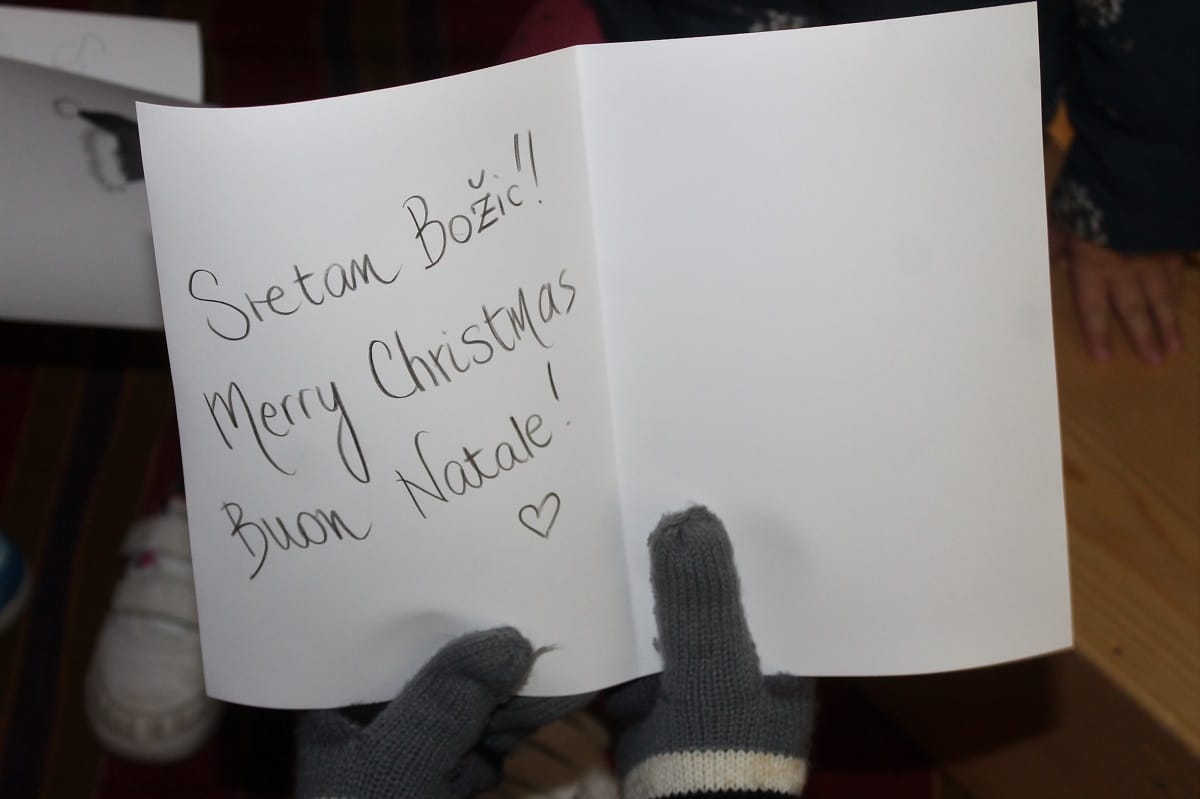 Sretan Božić!!
Merry Christmas
Buon Natale!